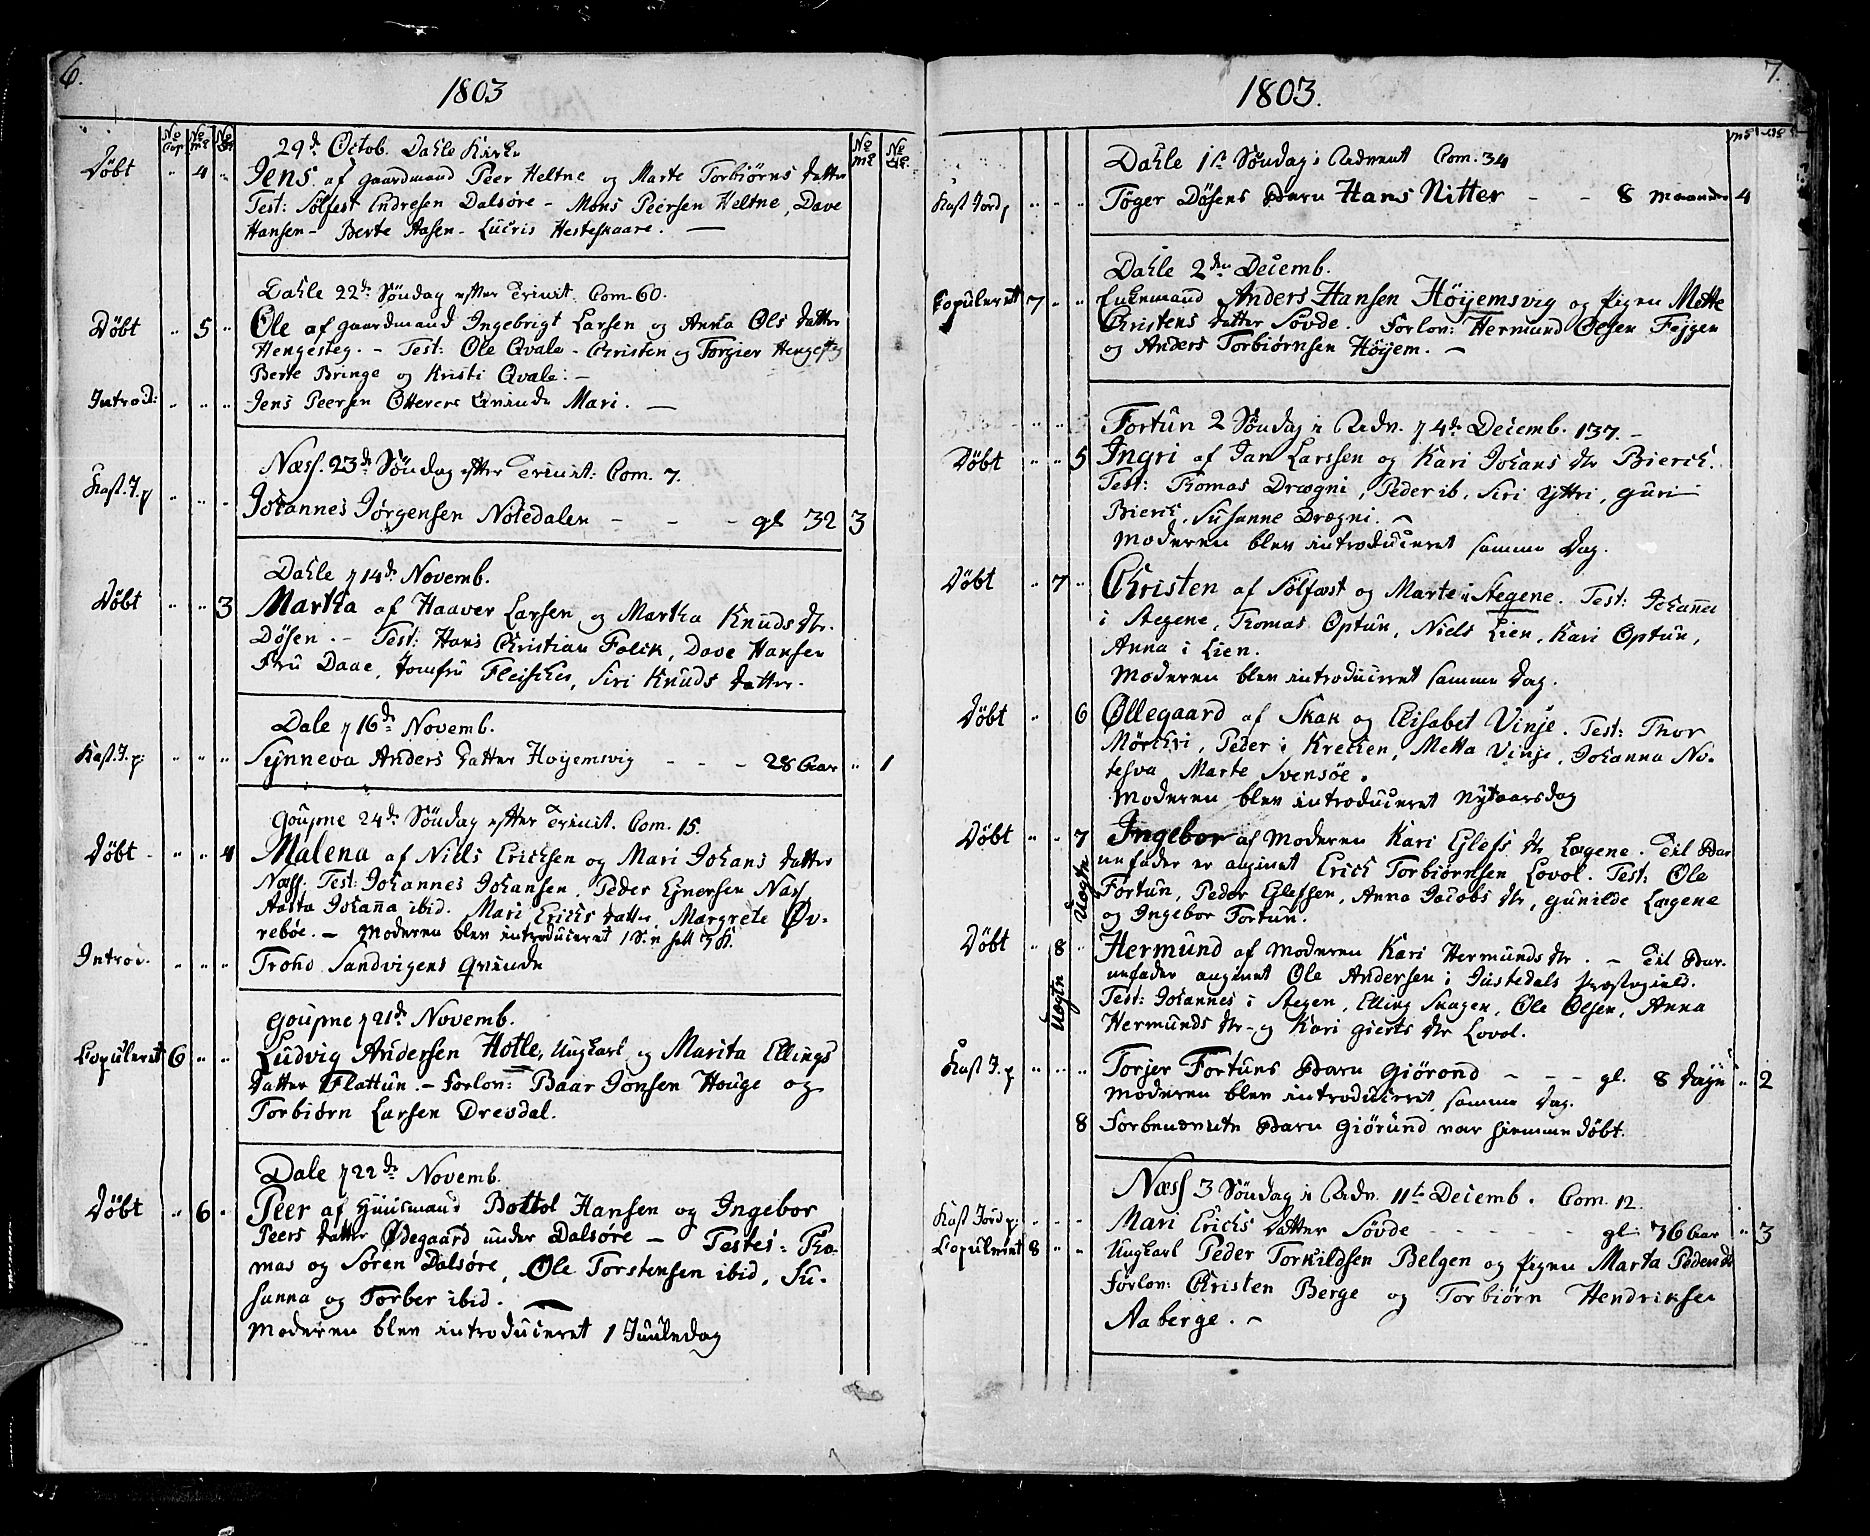 6.
1803
No Cop No me No
No me No
29d Octob. Dahle Kirke
Døbt " 4 " Jens af gaardmand Peer Heltne og Marte Torbiørns datter
Test: Sølfest Endresen Dalsøre - Mons Peersen Heltne, Dave
Hansen - Berte Aasen - Lucris Hesteskaare. -
Dahle 22de Søndag efter Trinit. Com. 60.
Døbt " 5 " Ole af gaardmand Ingebrigt Larsen og Anna Ols datter
Hengesteg. - Test: Ole Qvale - Christen og Torgier Hengesteg
Berte Bringe og Kristi Qvale. -
Introd: " " " Jens Peersen Otteren Qvinde Mari. -
Næss. 23de Søndag efter Trinit: Com. 7.
Kast. J. p " " " Johannes Jørgensen Notedalen - - - gl 32 3
Dahle d 14de Novemb.
Døbt " " 3 Martha af Haaver Larsen og Martha Knuds dtr.
Døsen. - Test: Hans Christian Falck, Dave Hansen
Fru Daae, Jomfru Fleischer, Siri Knuds datter.
Dale d 16de Novemb.
Kast. J. p: " " " Synneva Anders datter Høyemsvig - - - 28 Aar " 1
Goupne 24de Søndag efter Trinit. Com. 15.
Døbt - " " 4 Malena af Niels Ericksen og Mari Johans datter
Næss. Test: Johannes Johansen, Peder Ejnersen Næss
Aasta Johanna ibid. Mari Erichs datter, Margrete Øv-
rebøe. - Moderen blev introduceret 1 S. i
Introd. " " " Trond Sandvigens Qvinde
Goupne d 21de Novemb.
Copuleret 6 " " Ludvig Andersen Hotle, Ungkarl og Marita Ellings
datter Flattun. - Forlov: Baar Jonsen Houge og
Torbiørn Larsen Dresdal.
Dale d 22de Novemb.
Døbt " 6 " Peer af Huusmand Bottol Hansen og Ingebor
Peers datter Ødegaard under Dalsøre - Testes: Tho-
mas og Søren Dalsøre, Ole Torstensen ibid, Su-
sanna og Torber ibid.
Moderen blev introduceret 1 Juuledag
7.
1803.
Dahle 1te Søndag i Advent Com. 34
Kast Jord p " " " Tøger Døsens Barn Hans Nitter - - 8 Maaneder 4
Dahle 2den Decemb.
Copuleret 7 " " Enkemand Anders Hansen Höyemsvig og Pigen Mette
Christens datter Søvde. Forlov: Hermund Olsen Fejgen
og Anders Torbiørnsen Höyem. -
Fortun 2 Søndag i Adv. d 4de Decemb. 137. -
Døbt " " 5 Ingri af Jan Larssen og Kari Johans dtr Bierch.
Test: Thomas Drægni, Peder ib, Siri Yttri, Guri
Bierch, Susanne Drægni. -
Moderen blev introduceret samme Dag.
Døbt " 7 " Christen af Sølfæst og Marte i Stegene. Test: Johannes
i Stegene, Thomas Optun, Niels Lien, Kari Optun,
Anna i Lien.
Moderen blev introduceret samme Dag.
Døbt " 6 Øllegaard af Skak og Elisabet Vinje. Test: Thor
Mörchri, Peder i Krechen, Metta Vinje, Johanna No-
tesva Marte Svensøe.
Moderen blev introduceret Nytaarsdag
Døbt " " 7 Uægte Ingebor af Moderen Kari Glefs dtr Lægene. Til Bar
nefader er angivet Erich Torbiørnsen Lovol. Test: Ole
Fortun, Peder Glefsen, Anna Jacobs dtr, Gunilde Lægene
og Ingebor Fortun.
Døbt " 8 " Uægte Hermund af Moderen Kari Hermunds dtr. - Til Bar-
nefader angivet Ole Andersen i Justedals Præstegield.
Test: Johannes i Stegen, Elling Skagen, Ole Olsen, Anna
Hermunds dtr - og Kari Gierts dtr Lovol.
Kast J. p " " " Torjer Fortuns Barn Giörond - - - gl. 8 Dage " 2
Moderen blev introduceret samme Dag.
8 Forbenævnte Barn Giörund var hiemme døbt.
Næss 3 Søndag i Adv. 11te Decemb. Com. 12.
Kast Jord p: " " " Mari Erichs datter Søvde - - - - gl: 76 Aar " 3
Copuleret 8 " " Ungkarl Peder Torkildsen Belgen og Pigen Marta Peders dr
Forlov: Christen Berge og Torbiørn Hendriksen
Aaberge. -